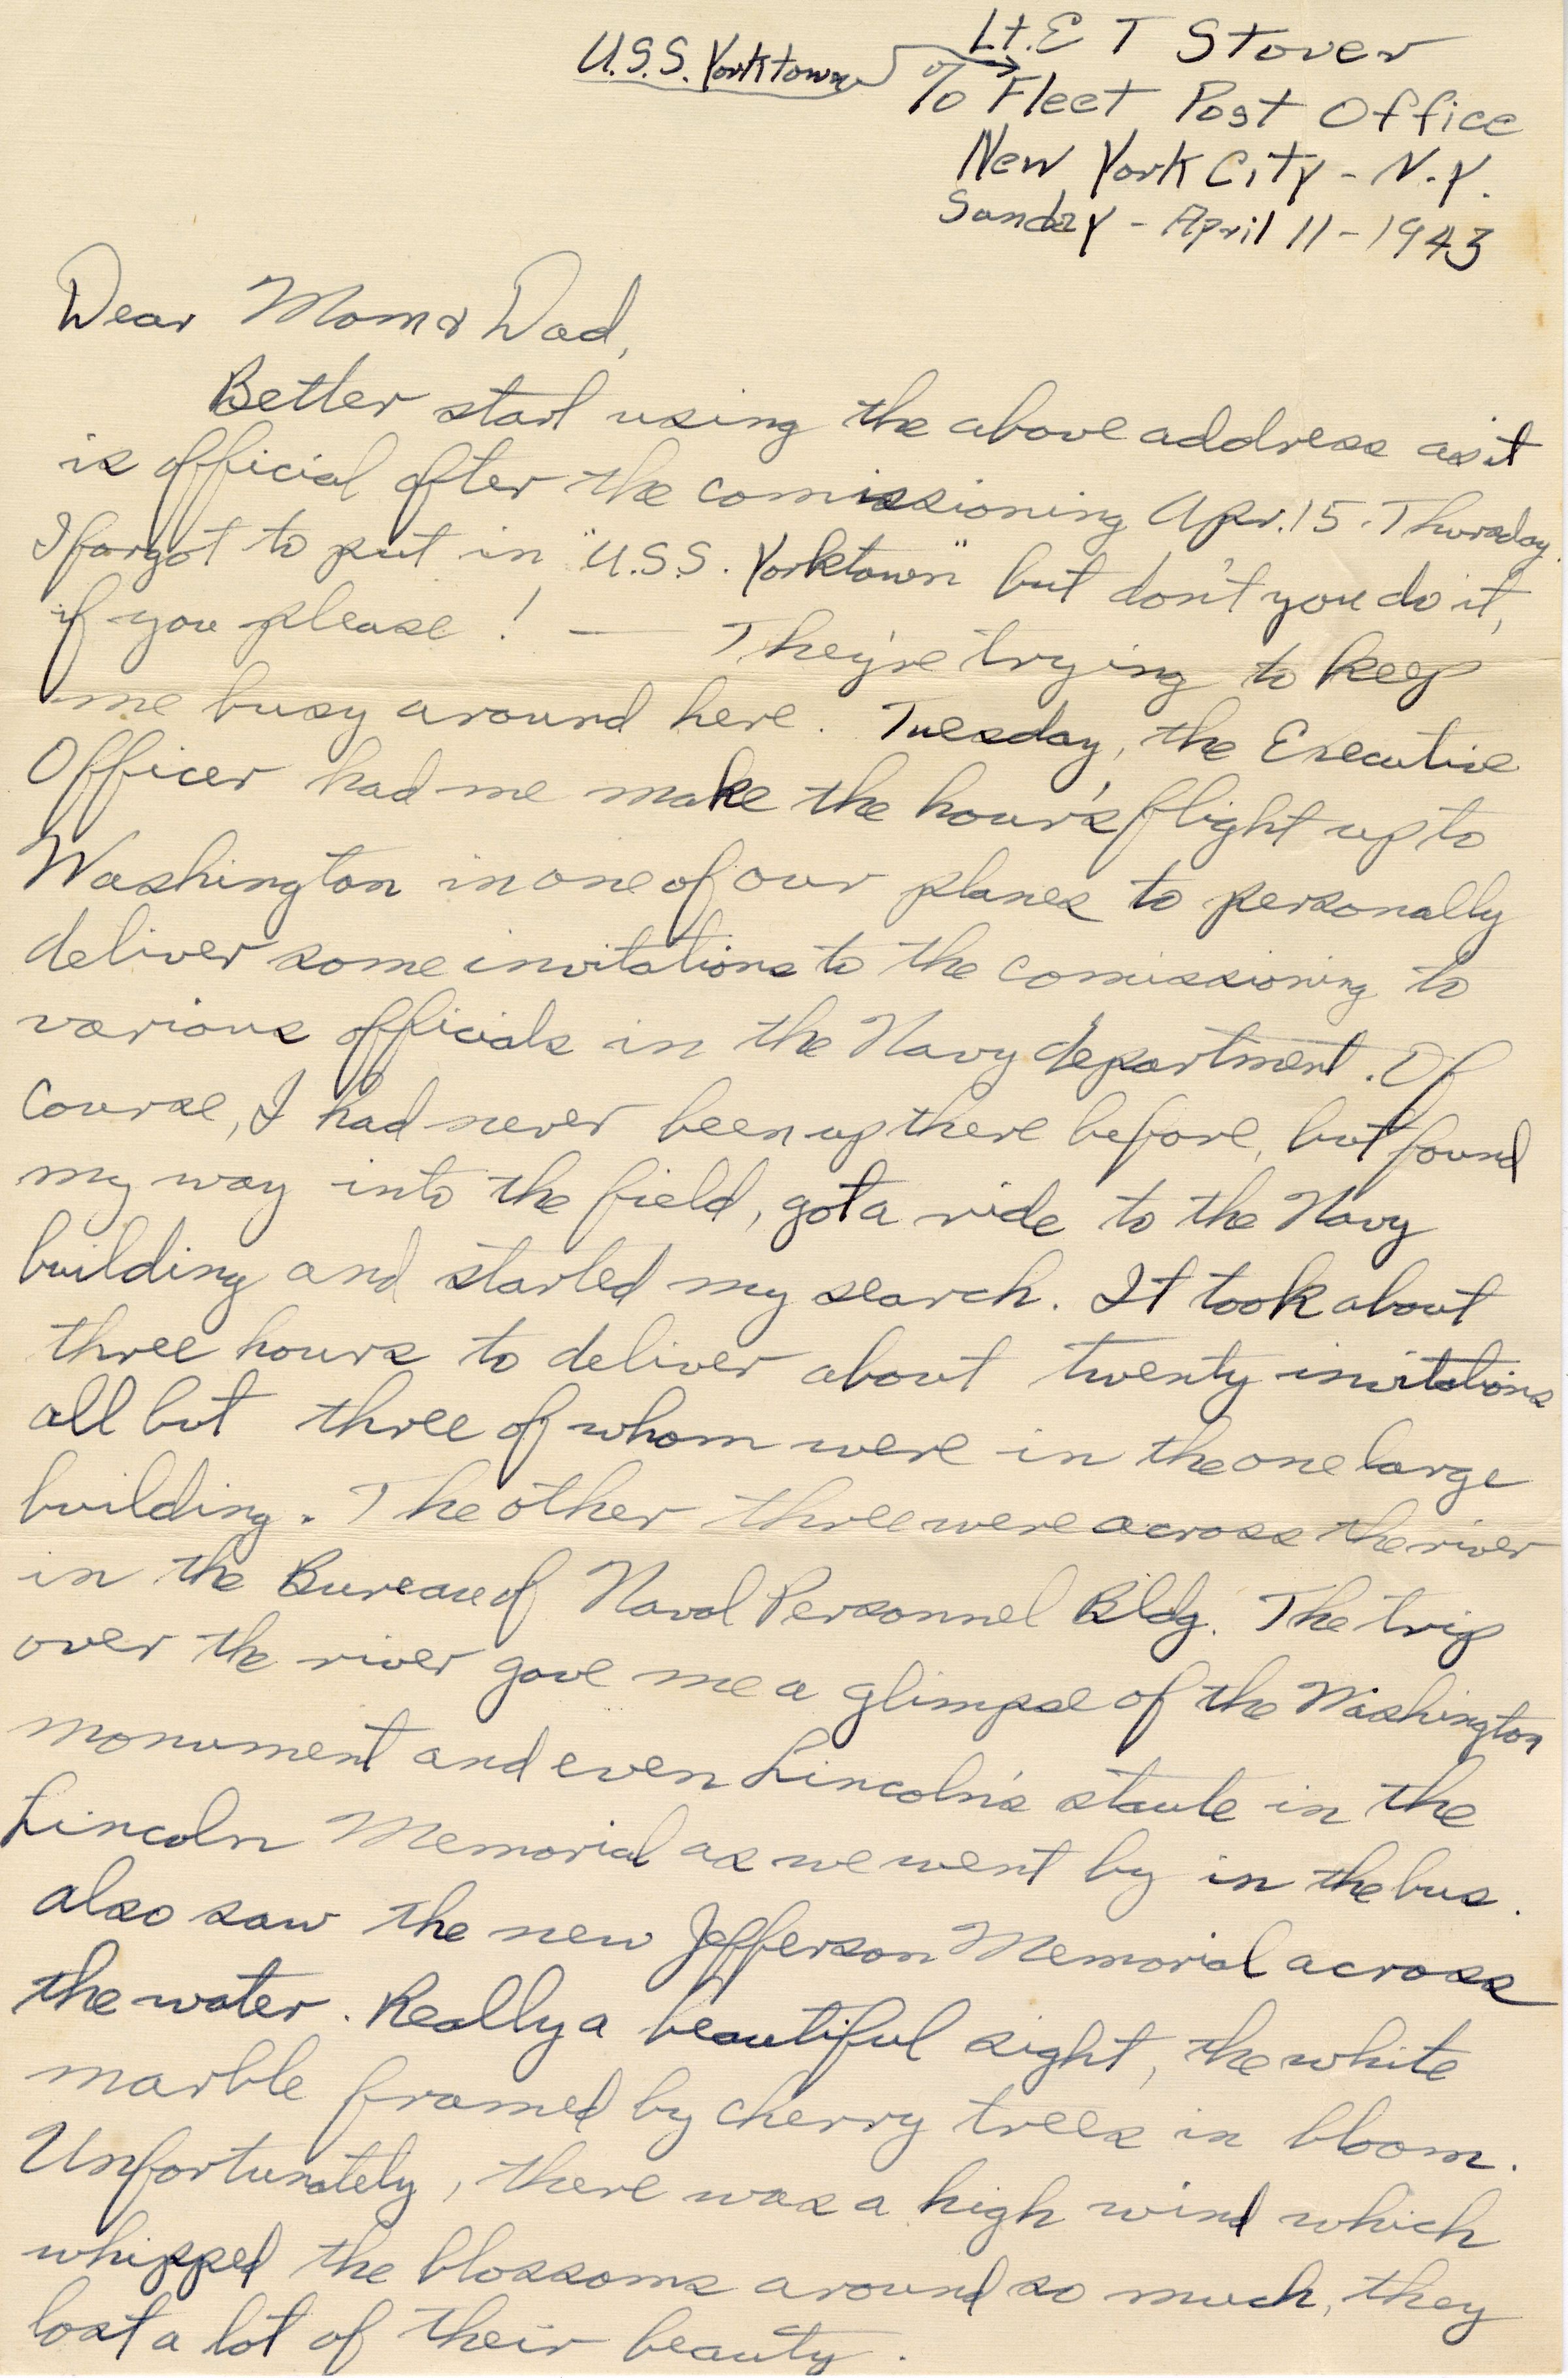 Lt. E T Stover
U.S.S. Yorktown
% Fleet Post Office
New York City - N.Y.
Sunday - April 11 - 1943
Dear Mom & Dad,
Better start using the above address as it
is official after the comissioning Apr. 15. Thursday.
I forgot to put in "U.S.S. Yorktown" but don't you do it,
if you please! — They're trying to keep
me busy around here. Tuesday, the Executive
Officer had me make the hour's flight up to
Washington in one of our planes to personally
deliver some invitations to the comissioning to
various officials in the Navy department. Of
course, I had never been up there before, but found
my way into the field, got a ride to the Navy
building and started my search. It took about
three hours to deliver about twenty invitations
all but three of whom were in the one large
building. The other three were across the river
in the Bureau of Naval Personnel Bldg. The trip
over the river gave me a glimpse of the Washington
monument and even Lincoln's staute in the
Lincoln Memorial as we went by in the bus.
also saw the new Jefferson Memorial across
the water. Really a beautiful sight, the white
marble framed by cherry trees in bloom.
Unfortunately, there was a high wind which
whipped the blossoms around so much, they
lost a lot of their beauty.